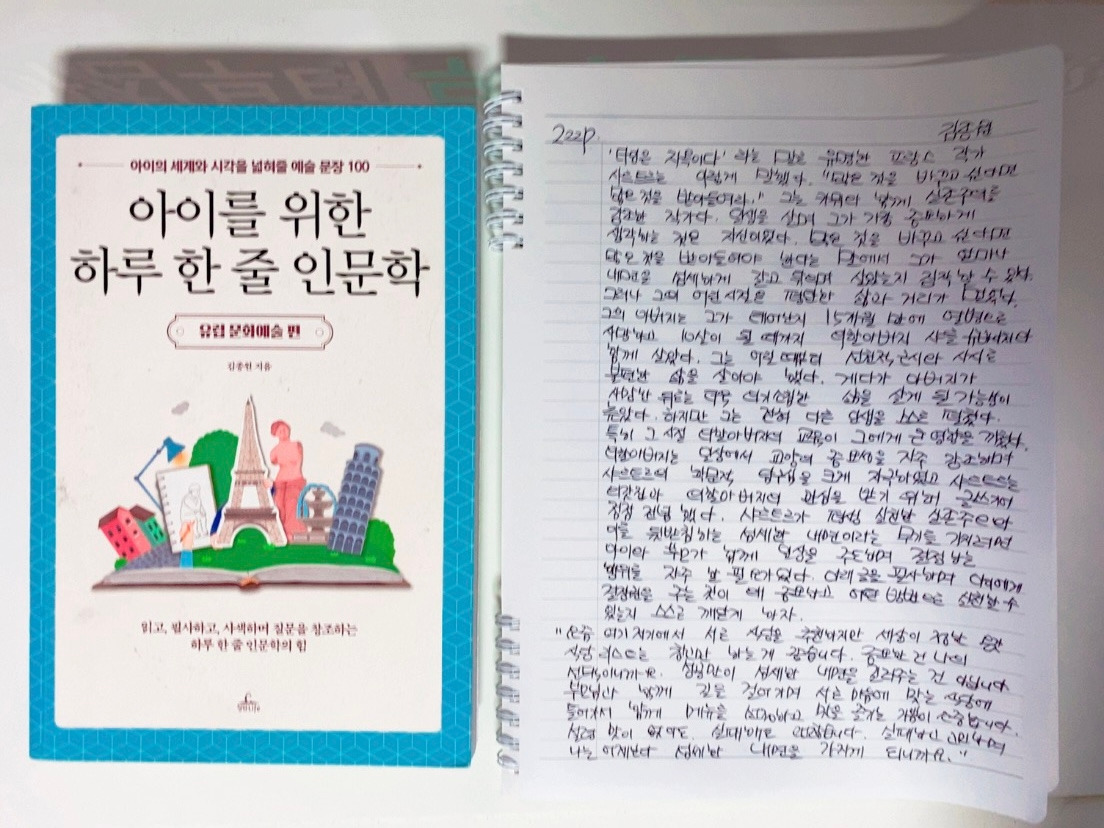 아이의 세계와 시각을 넓혀줄 예술 문장 100
아이를 위한
하루 한 줄 인문학
유럽 문화예술 편
김종원 지음
읽고, 필사하고, 사색하며 질문을 창조하는
하루 한 줄 인문학의 힘
222p. 김종원
'타인은 지옥이다' 라는 말로 유명한 프랑스 작가
사르트르는 이렇게 말했다. "많은 것을 바꾸고 싶다면
많은 것을 받아들여라." 그는 카뮈와 함께 실존주의를
강조한 작가다. 인생을 살며 그가 가장 중요하게
생각하는 것은 자신이었다. 많은 것을 바꾸고 싶다면
많은 것을 받아들여야 한다는 말에서 그가 얼마나
내면을 섬세하게 갈고 닦으며 살았는지 짐작할 수 있다.
그러나 그의 어린시절은 평탄한 삶과 거리가 멀었다.
그의 아버지는 그가 태어난지 15개월 만에 열병으로
사망하고 10살이 될 때까지 외할아버지 샤를 슈바이처와
함께 살았다. 그는 어릴 때부터 선천적 근시와 사시로
불편한 삶을 살아야 했다. 게다가 아버지가
사망한 뒤로는 더욱 의기소침한 삶을 살게 될 가능성이
높았다. 하지만 그는 전혀 다른 인생을 스스로 펼쳤다.
특히 그 시절 외할아버지의 교육이 그에게 큰 영향을 끼쳤다.
외할아버지는 일상에서 교양의 중요성을 자주 강조하며
사르트르의 학문적 탐구심을 크게 자극하였고 사르트르는
외갓집과 외할아버지의 관심을 받기 위해 글쓰기에
점점 전념했다. 사르트르가 평생 실천한 실존주의와
이를 뒷받침하는 섬세한 내면이라는 무기를 가지려면
아이와 부모가 함께 일상을 주도하며 결정하는
행위를 자주 할 필요가 있다. 아래 글을 필사하며 아이에게
결정권을 주는 것이 왜 중요하고 어떤 방법으로 실천할 수
있는지 스스로 깨닫게 하자.
"요즘 여기저기에서 서로 식당을 추천하지만 세상이 정한 맛
식당 리스트는 참고만 하는게 좋습니다. 중요한 건 나의
선택이니까요. 성공만이 섬세한 내면을 길러주는 건 아닙니다.
부모님과 함께 길을 걸어가며 서로 마음에 맞는 식당에
들어가서 함께 메뉴를 선정하고 맛을 즐기는 기쁨이 소중합니다.
설령 맛이 없어도, 실패해도 괜찮습니다. 실패하고 고민하며
나는 어제보다 섬세한 내면을 가지게 되니까요."